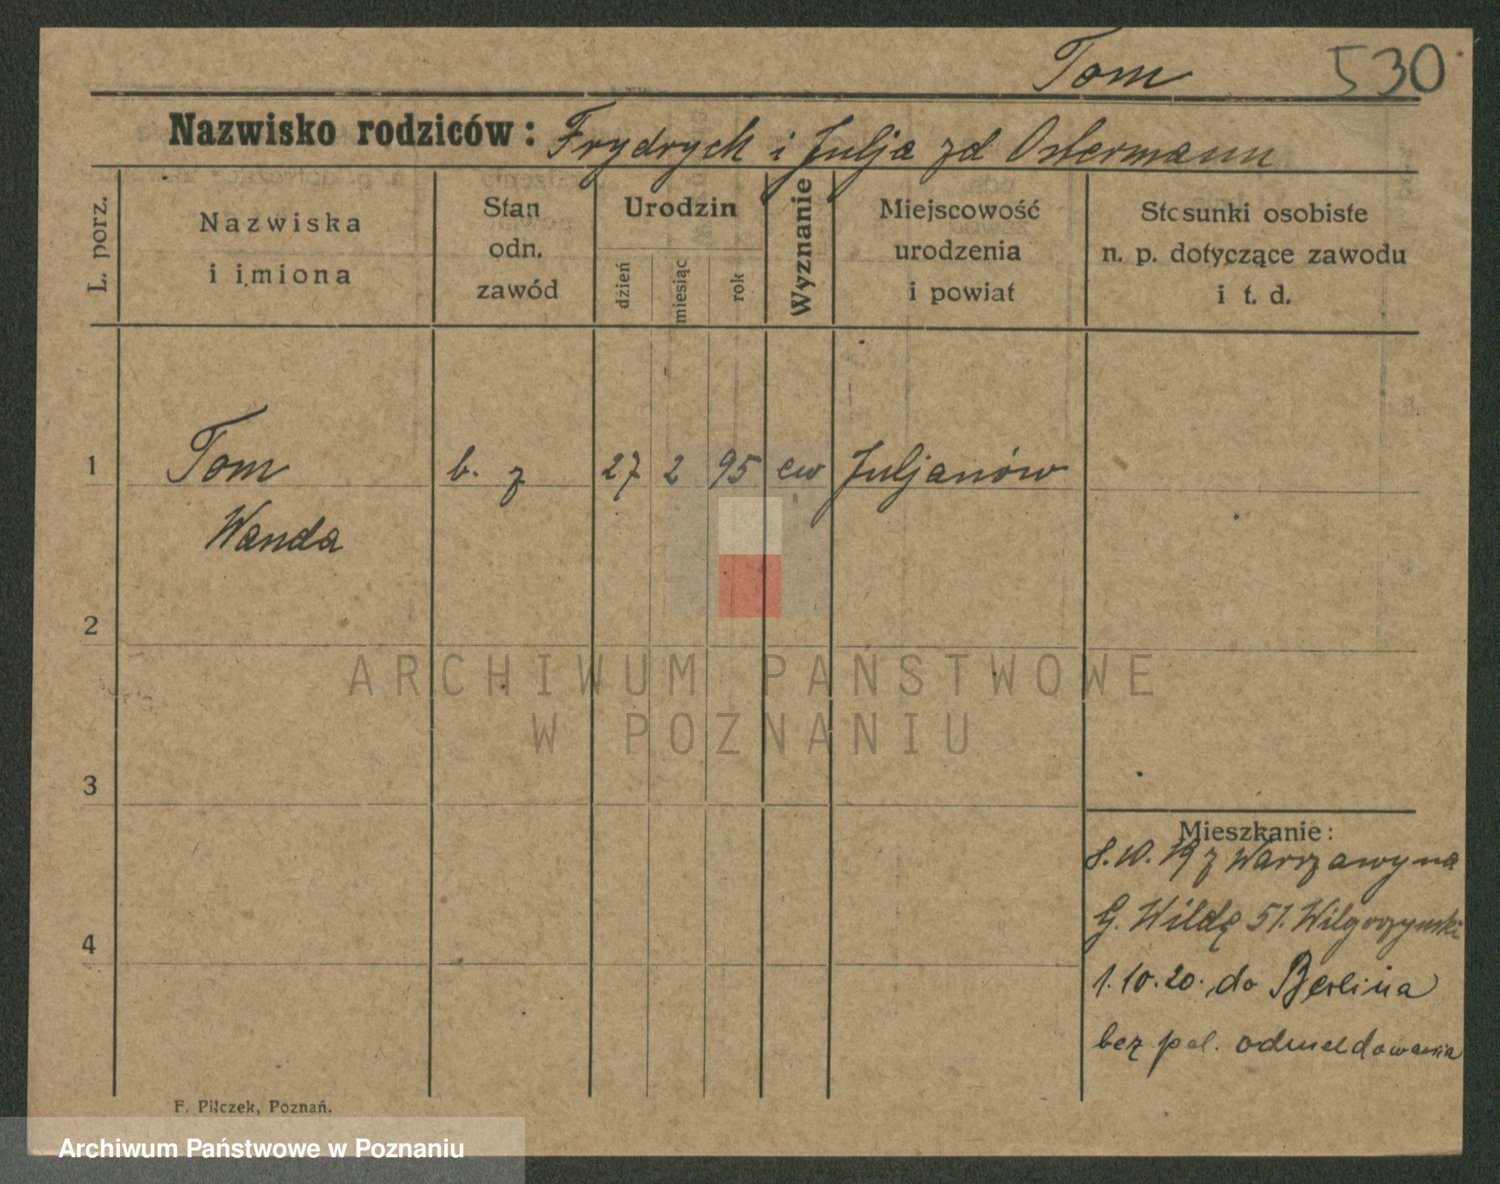 Tom 530
Nazwisko rodziców: Frydrych i Julja zd Ostermann
L. porz.
Nazwiska
i imiona
Stan
odn.
zawód
Urodzin
dzień
miesiąc
rok
Wyznanie
Miejscowość
urodzenia
i powiat
Stosunki osobiste
n. p. dotyczące zawodu
i t. d.
1 Tom b. z 27 2 95 ew Juljanów
Wanda
2
ARCHIWUM PAŃSTWOWE
W POZNANIU
3
Mieszkanie:
8.10.19 z Warszawy na
G. Wildę 51. Wilgorzynski
4
1.10.20. do Berlina
bez pol. odmeldowania
F. Pilczek, Poznań.
Archiwum Państwowe w Poznaniu